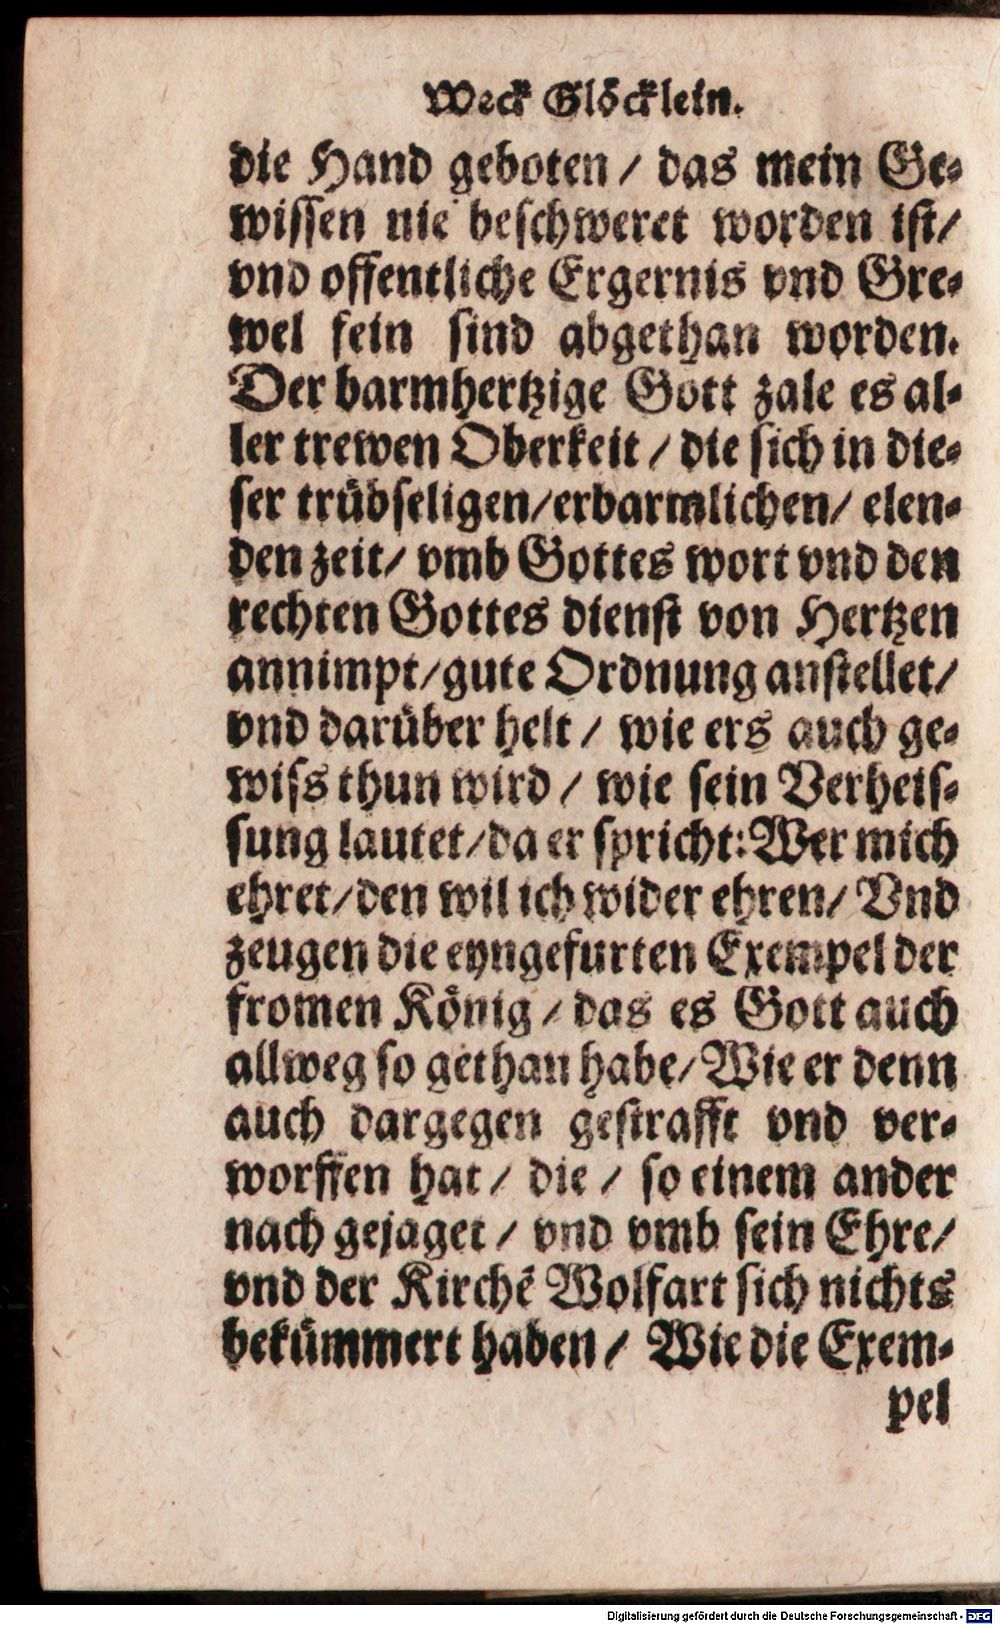 Weck Glöcklein.
die Hand geboten / das mein Ge-
wissen nie beschweret worden ist/
vnd offentliche Ergernis vnd Gre-
wel fein sind abgethan worden.
Der barmhertzige Gott zale es al-
ler trewen Oberkeit / die sich in die-
ser trübseligen/erbarmlichen/ elen-
den zeit/ vmb Gottes wort vnd den
rechten Gottes dienst von Hertzen
annimpt/gute Ordnung anstellet/
vnd darüber helt / wie ers auch ge-
wiss thun wird / wie sein Verheis-
sung lautet/da er spricht: Wer mich
ehret/den wil ich wider ehren/ Vnd
zeugen die eyngefurten Exempel der
fromen König / das es Gott auch
allweg so gethan habe/ Wie er denn
auch dargegen gestrafft vnd ver-
worffen hat / die / so einem ander
nach gejaget / vnd vmb sein Ehre/
vnd der Kirchē Wolfart sich nichts
bekümmert haben / Wie die Exem-
pel
Digitalisierung gefördert durch die Deutsche Forschungsgemeinschaft - DFG